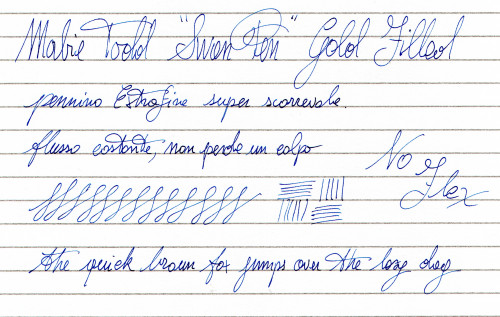 Mabie Todd "Swan Pen" Gold Filled
pennino Extrafine super scorrevole.
flusso costante, non perde un colpo
No
Flex
the quick brown fox jumps over the lazy dog